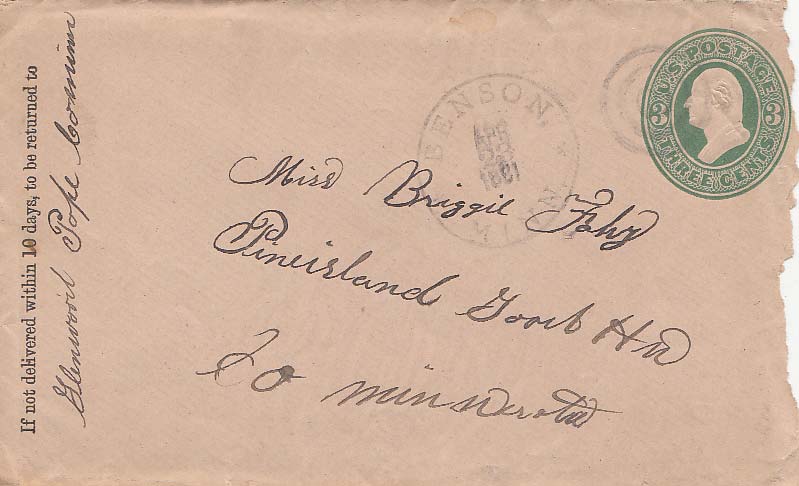 If not delivered within 10 days, to be returned to
Glenwood Pope Co minn
BENSON, MINN.
APR
1881
U.S. POSTAGE
3 3
THREE CENTS
Miss Briggie Fahy
Pineisland Good Hu
Co minnesota